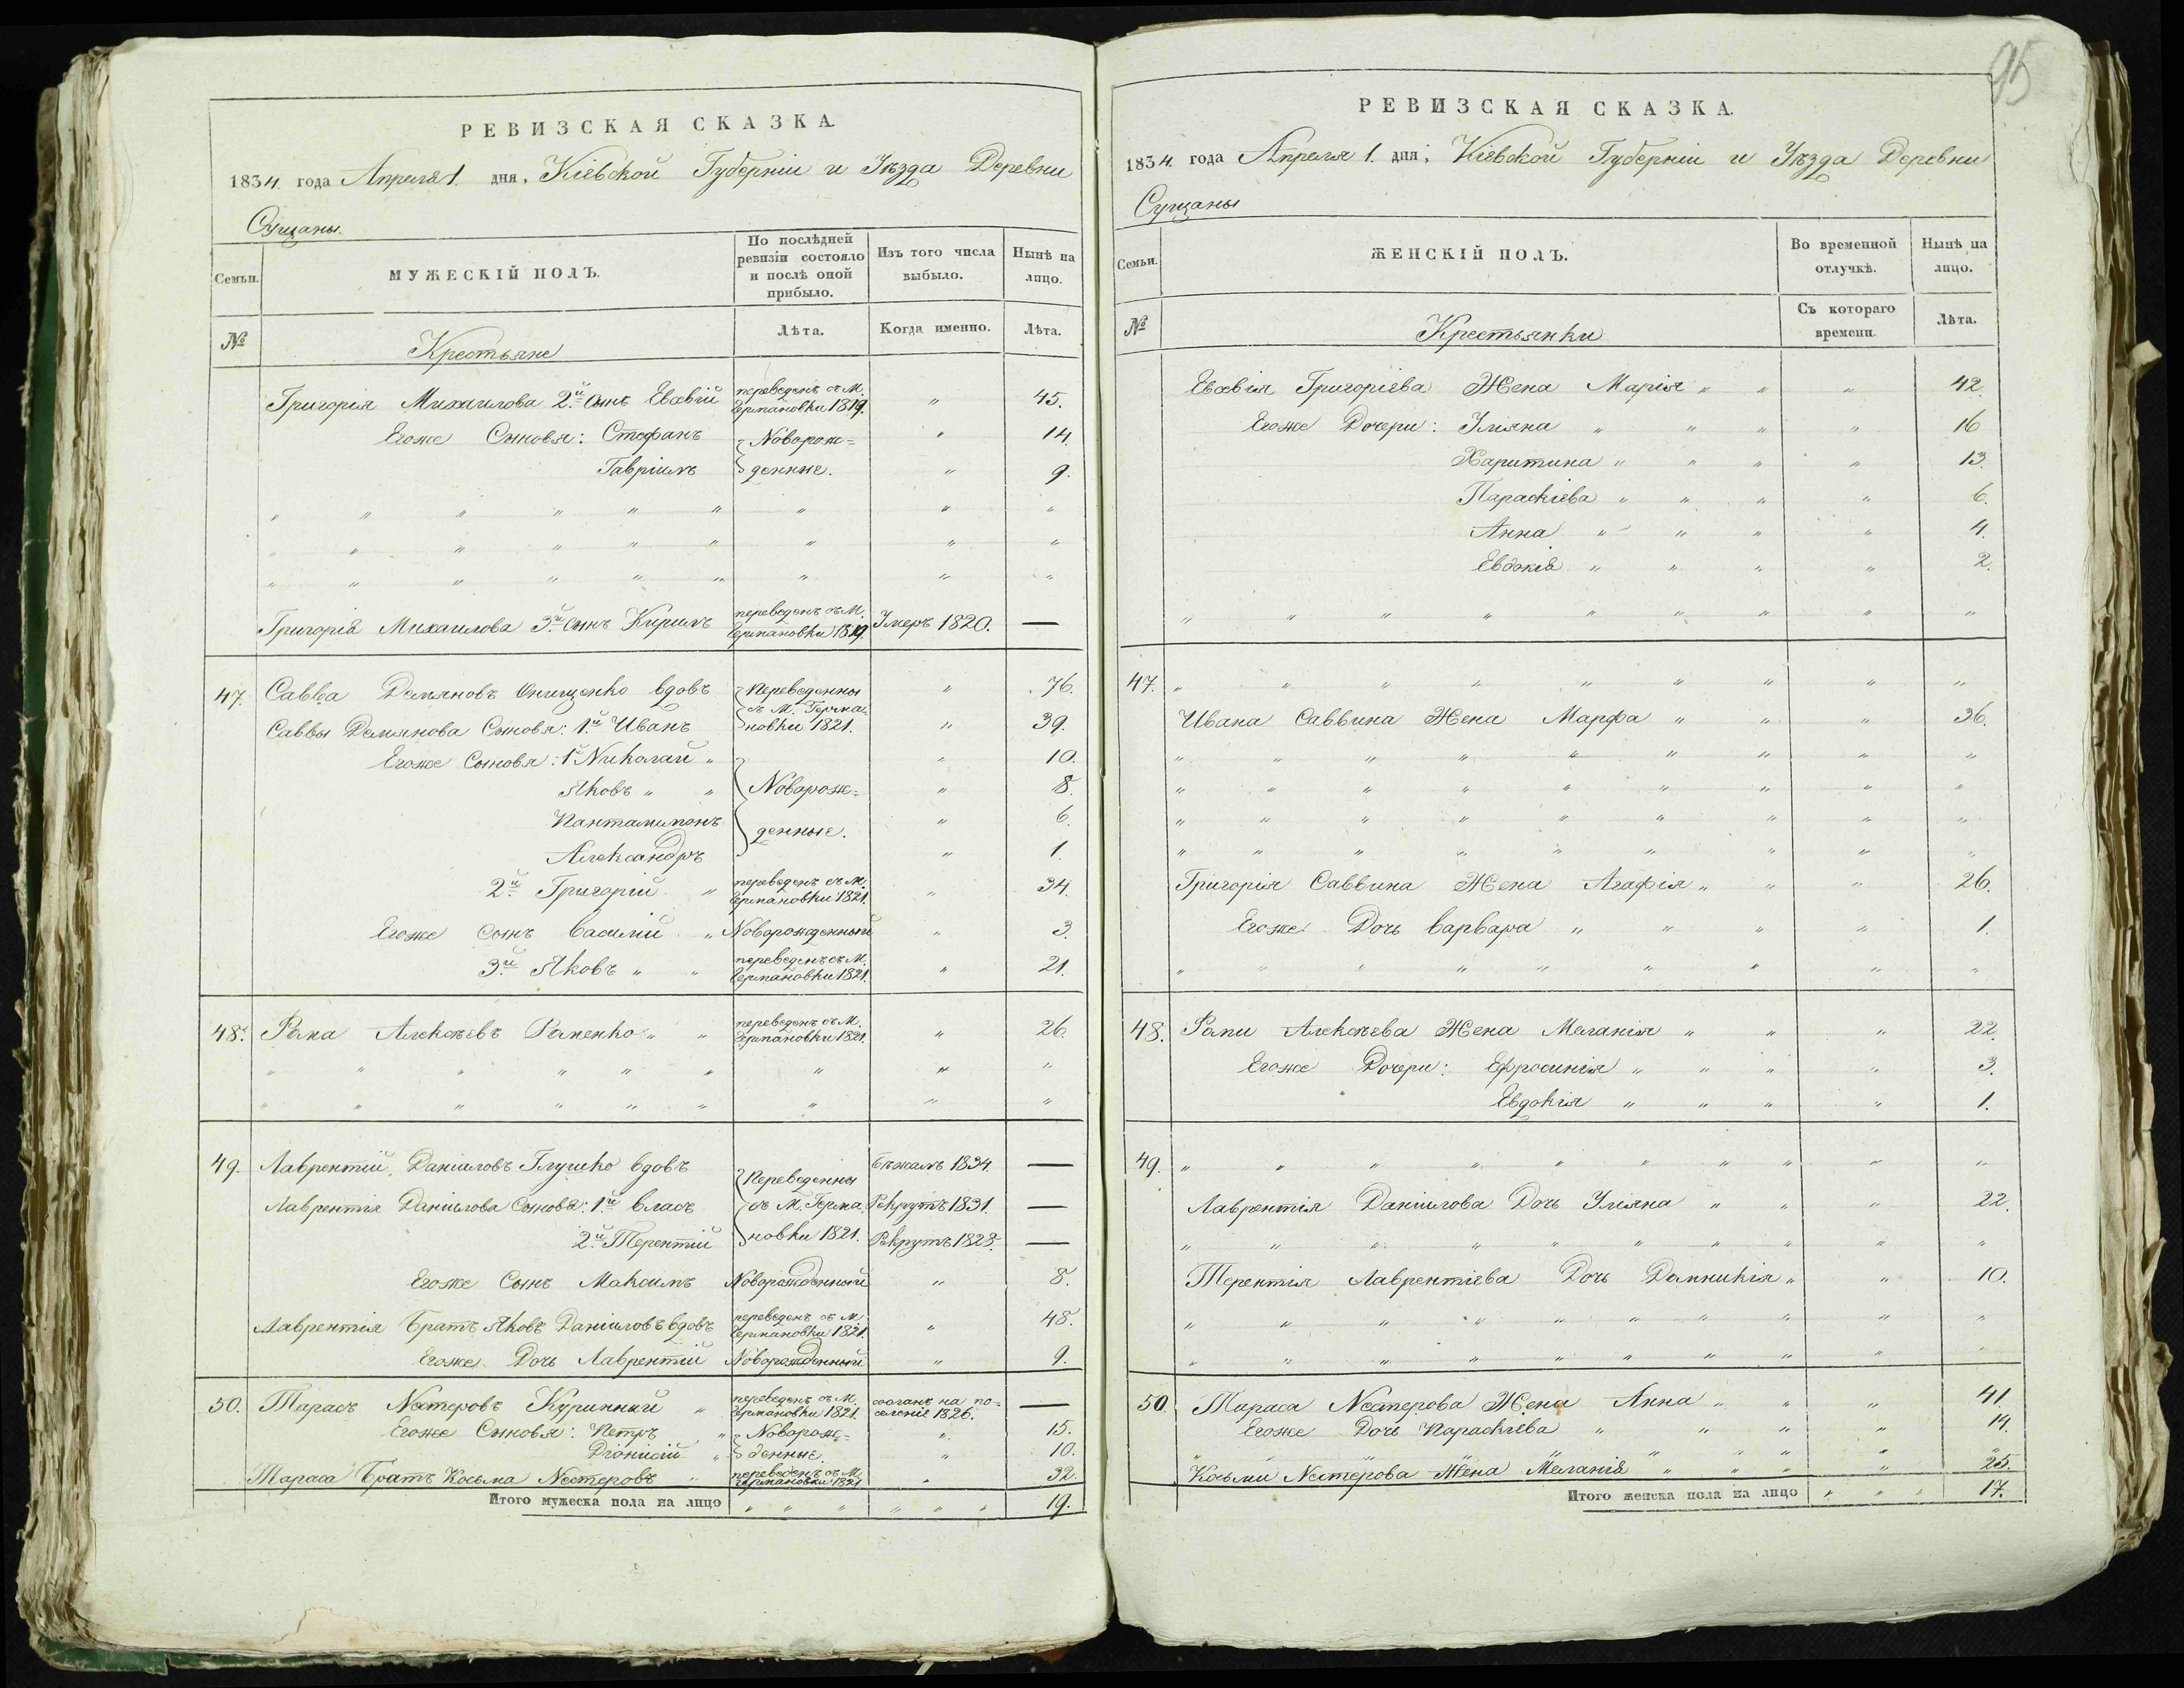 РЕВИЗСКАЯ СКАЗКА.
1834. года Апреля 1. дня, Кіевской Губерніи и Уѣзда Деревни
Сущаны.
Семьи. МУЖЕСКІЙ ПОЛЪ. По послѣдней ревизіи состояло и послѣ оной прибыло. Изъ того числа выбыло. Нынѣ на лицо.
№ Крестьяне Лѣта. Когда именно. Лѣта.
Григорія Михаилова 2й Сынъ Евсевій переведенъ съ М. Германовки 1819. " 45.
Егоже Сыновья: Стефанъ Новорож= " 14.
Гавріилъ денные. " 9.
Григорія Михаилова 3й Сынъ Кирилъ переведенъ съ М. Германовки 1819. Умеръ 1820. —
47. Савва Демяновъ Онищенко вдовъ Переведенны " 76.
Саввы Демянова Сыновья: 1й Иванъ съ М. Герма=новки 1821. " 39.
Егоже Сыновья: 1й Николай " " 10.
Яковъ " " Новорож= " 8.
Пантелимонъ денные. " 6.
Александръ " 1.
2й Григорій " переведенъ съ М. Германовки 1821. " 34.
Егоже Сынъ Василій " Новорожденный " 3.
3й Яковъ " " переведенъ съ М. Германовки 1821. " 21.
48. Алексѣевъ " " переведенъ съ М. Германовки 1821. " 26.
49. Лаврентій Даніиловъ Глушко вдовъ Переведенны Бѣжалъ 1834. —
Лаврентія Даніилова Сыновья: 1й Власъ съ М. Герма Рекрутъ 1831. —
2й Терентій новки 1821. Рекрутъ 1828. —
Егоже Сынъ Максимъ Новорожденный " 8.
Лаврентія Братъ Яковъ Даніиловъ вдовъ переведенъ съ М. Германовки 1821. " 48.
Егоже Дочь Лаврентій Новорожденный " 9.
50. Тарасъ Нестеровъ Куринный " переведенъ съ М. Германовки 1821. сосланъ на по=селеніе 1826. —
Егоже Сыновья: Петръ " Новорож= " 15.
Діонисій " денные. " 10.
Тараса Братъ Косьма Нестеровъ " переведенъ съ М. Германовки 1821 " 32.
Итого мужеска пола на лицо " " " " " " 19.
95
РЕВИЗСКАЯ СКАЗКА.
1834. года Апреля 1. дня, Кіевской Губерніи и Уѣзда Деревни
Сущаны
Семьи. ЖЕНСКІЙ ПОЛЪ. Во временной отлучкѣ. Нынѣ на лицо.
№ Крестьянки Съ котораго времени. Лѣта.
Евсевія Григоріева Жена Марія " " " 42.
Егоже Дочери: Уліяна " " " " 16
Харитина " " " " 13.
Параскіева " " " " 6.
Анна " " " " 4.
Евдокія " " " " 2.
47. " " " " " " " " "
Ивана Саввина Жена Марфа " " " 36.
Григорія Саввина Жена Агафія " " " 26.
Егоже Дочь Варвара " " " " 1.
48. Алексѣева Жена Меланія " " " 22.
Егоже Дочери: Ефросинія " " " " 3.
Евдокія " " " " 1.
49. " " " " " " " " " "
Лаврентія Даніилова Дочь Уліяна " " " 22.
Терентія Лаврентіева Дочь Домникія " " 10.
50. Тараса Нестерова Жена Анна " " " 41
Егоже Дочь Параскіева " " " " 14.
Косьми Нестерова Жена Меланія " " " " 25.
Итого женска пола на лицо " " " 17.